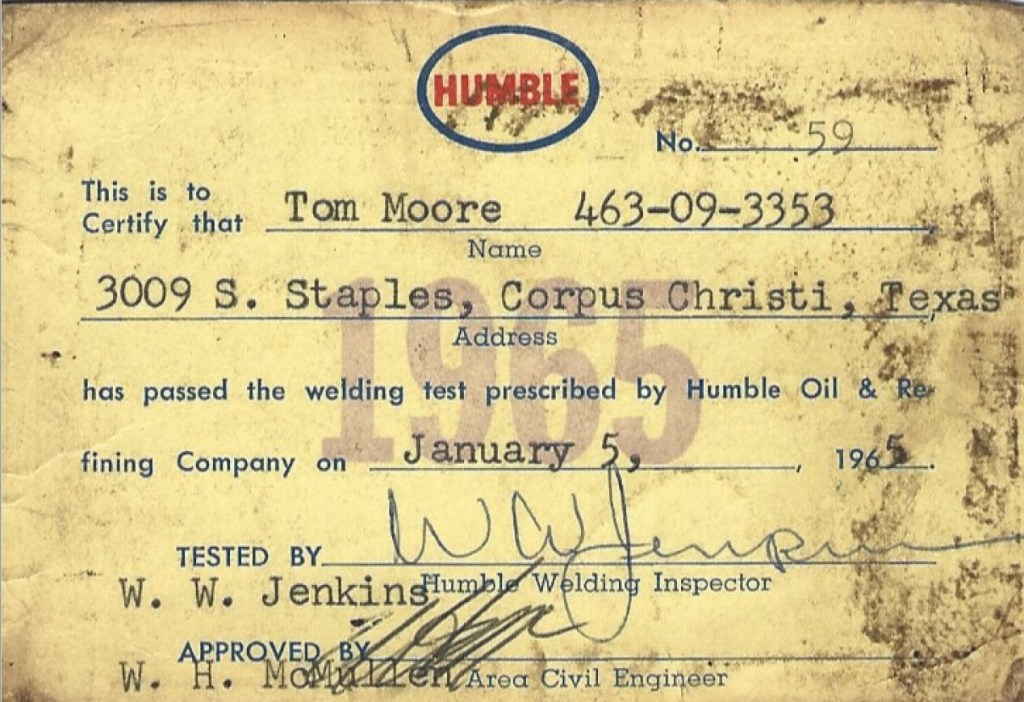 HUMBLE
No. 59
This is to
Certify that Tom Moore 463-09-3353
Name
3009 S. Staples, Corpus Christi, Texas
Address
1965
has passed the welding test prescribed by Humble Oil & Re-
fining Company on January 5, , 1965.
W W Jenkins
TESTED BY
Humble Welding Inspector
W. W. Jenkins
APPROVED BY
W. H. McMullen Area Civil Engineer